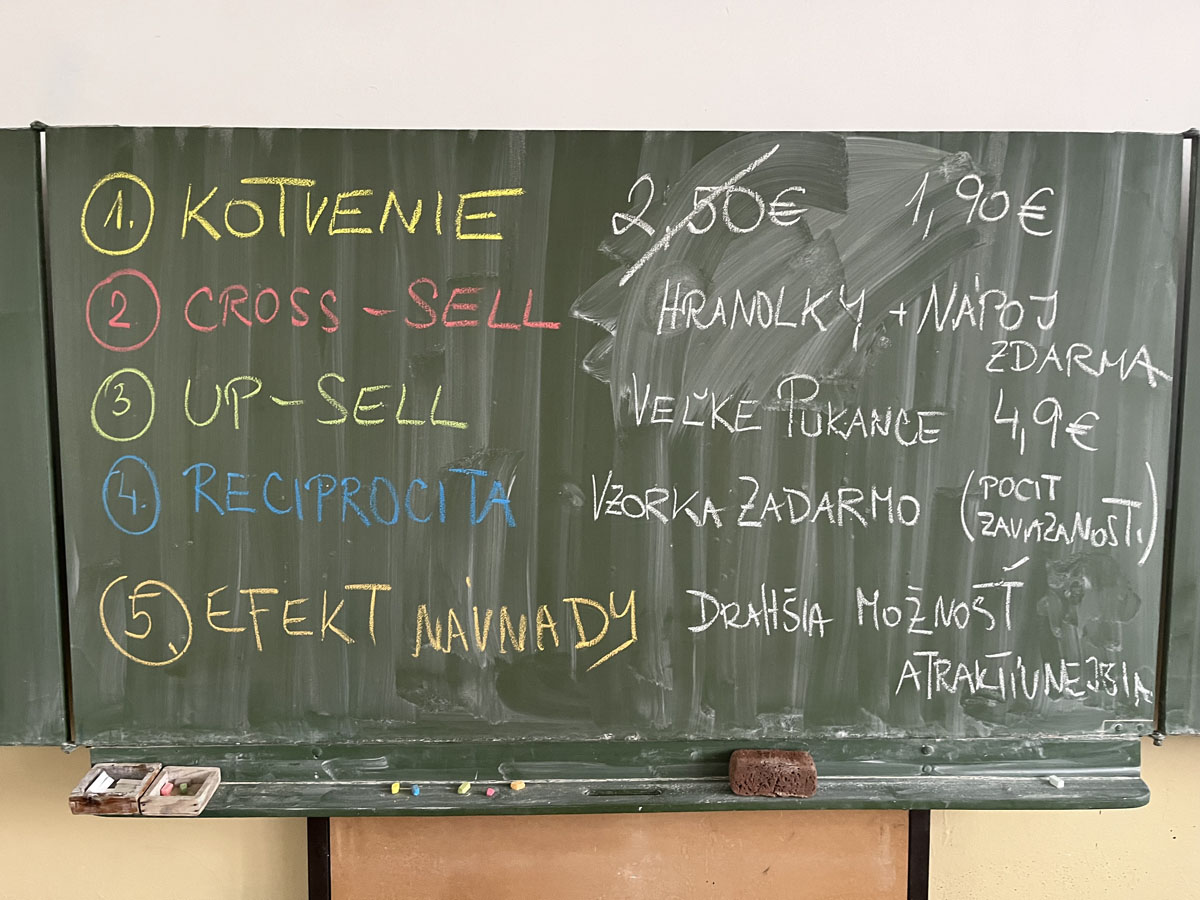 1. KOTVENIE 2,50€ 1,90€
2. CROSS-SELL HRANOLKY + NÁPOJ
ZDARMA
3. UP-SELL VEĽKÉ PUKANCE 4,9€
4. RECIPROCITA VZORKA ZADARMO (POCIT
ZAVIAZANOSTI)
5. EFEKT NÁVNADY DRAHŠIA MOŽNOSŤ
ATRAKTÍVNEJŠIA